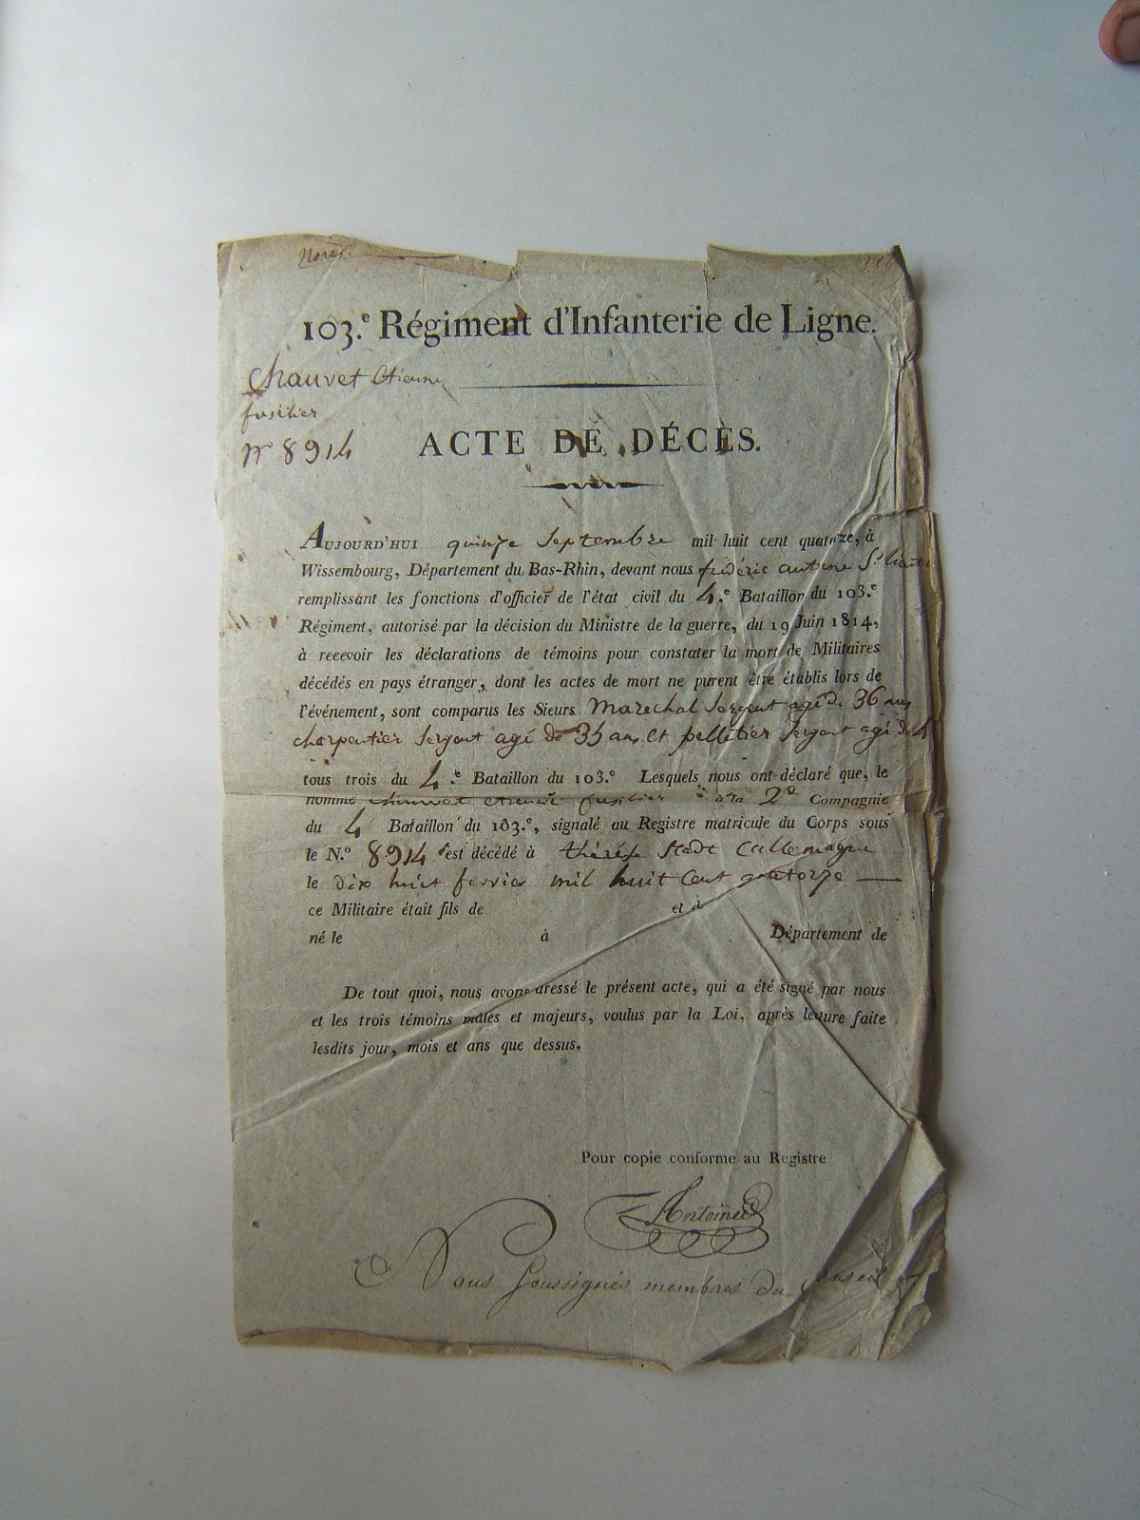 103.e Régiment d'Infanterie de Ligne.
Chauvet Etienne
fusilier
No 8914
ACTE DE DÉCÈS.
AUJOURD'HUI quinze Septembre mil huit cent quatorze, à
Wissembourg, Département du Bas-Rhin, devant nous frédéric antoine
remplissant les fonctions d'officier de l'état civil du 4.e Bataillon du 103.e
Régiment, autorisé par la décision du Ministre de la guerre, du 19 Juin 1814,
à recevoir les déclarations de témoins pour constater la mort de Militaires
décédés en pays étranger, dont les actes de mort ne purent être établis lors de
l'événement, sont comparus les Sieurs Marechal Sergent agé de 36 ans
charpentier Sergent agé de 35 ans et pelletier Sergent agé de
tous trois du 4.e Bataillon du 103.e Lesquels nous ont déclaré que, le
nommé chauvet etienne fusilier à la 2e Compagnie
du 4 Bataillon du 103.e, signalé au Registre matricule du Corps sous
le N.o 8914 est décédé à thérése Stadt
le dix huit fevrier mil huit Cent quatorze
ce Militaire était fils de et de
né le à Département de
De tout quoi, nous avons dressé le présent acte, qui a été signé par nous
et les trois témoins mâles et majeurs, voulus par la Loi, après lecture faite
lesdits jour, mois et ans que dessus.
Pour copie conforme au Registre
Antoine
Nous Soussignés membres du Conseil